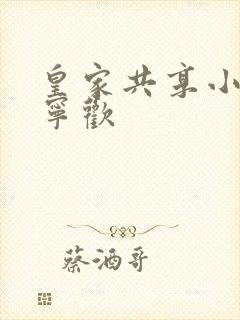 皇家共享小
寧歡
蔡酒哥